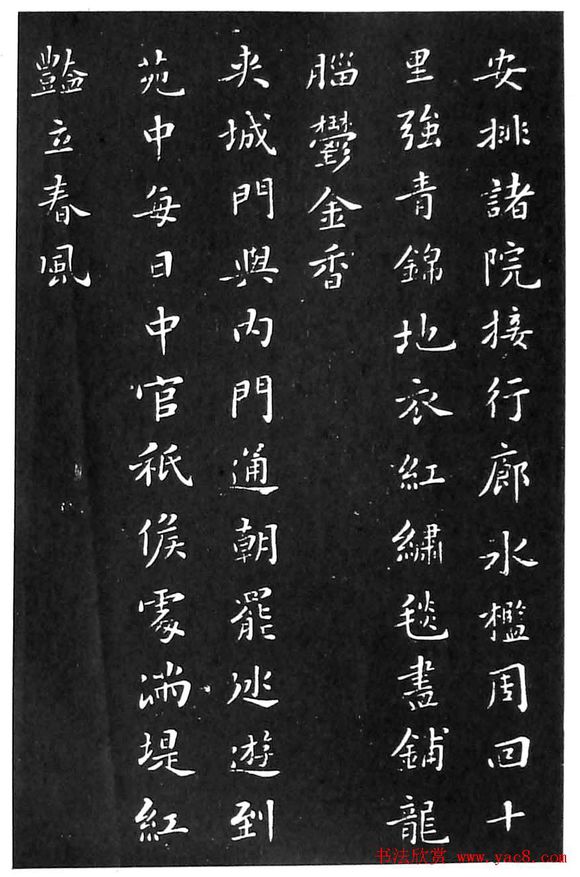 安排諸院接行廊水檻周回十
里強青錦地衣紅繡毯盡鋪龍
腦鬱金香
夾城門與內門通朝罷巡遊到
苑中每日中官祗候處滿堤紅
豔立春風
书法欣赏 www.yac8.com